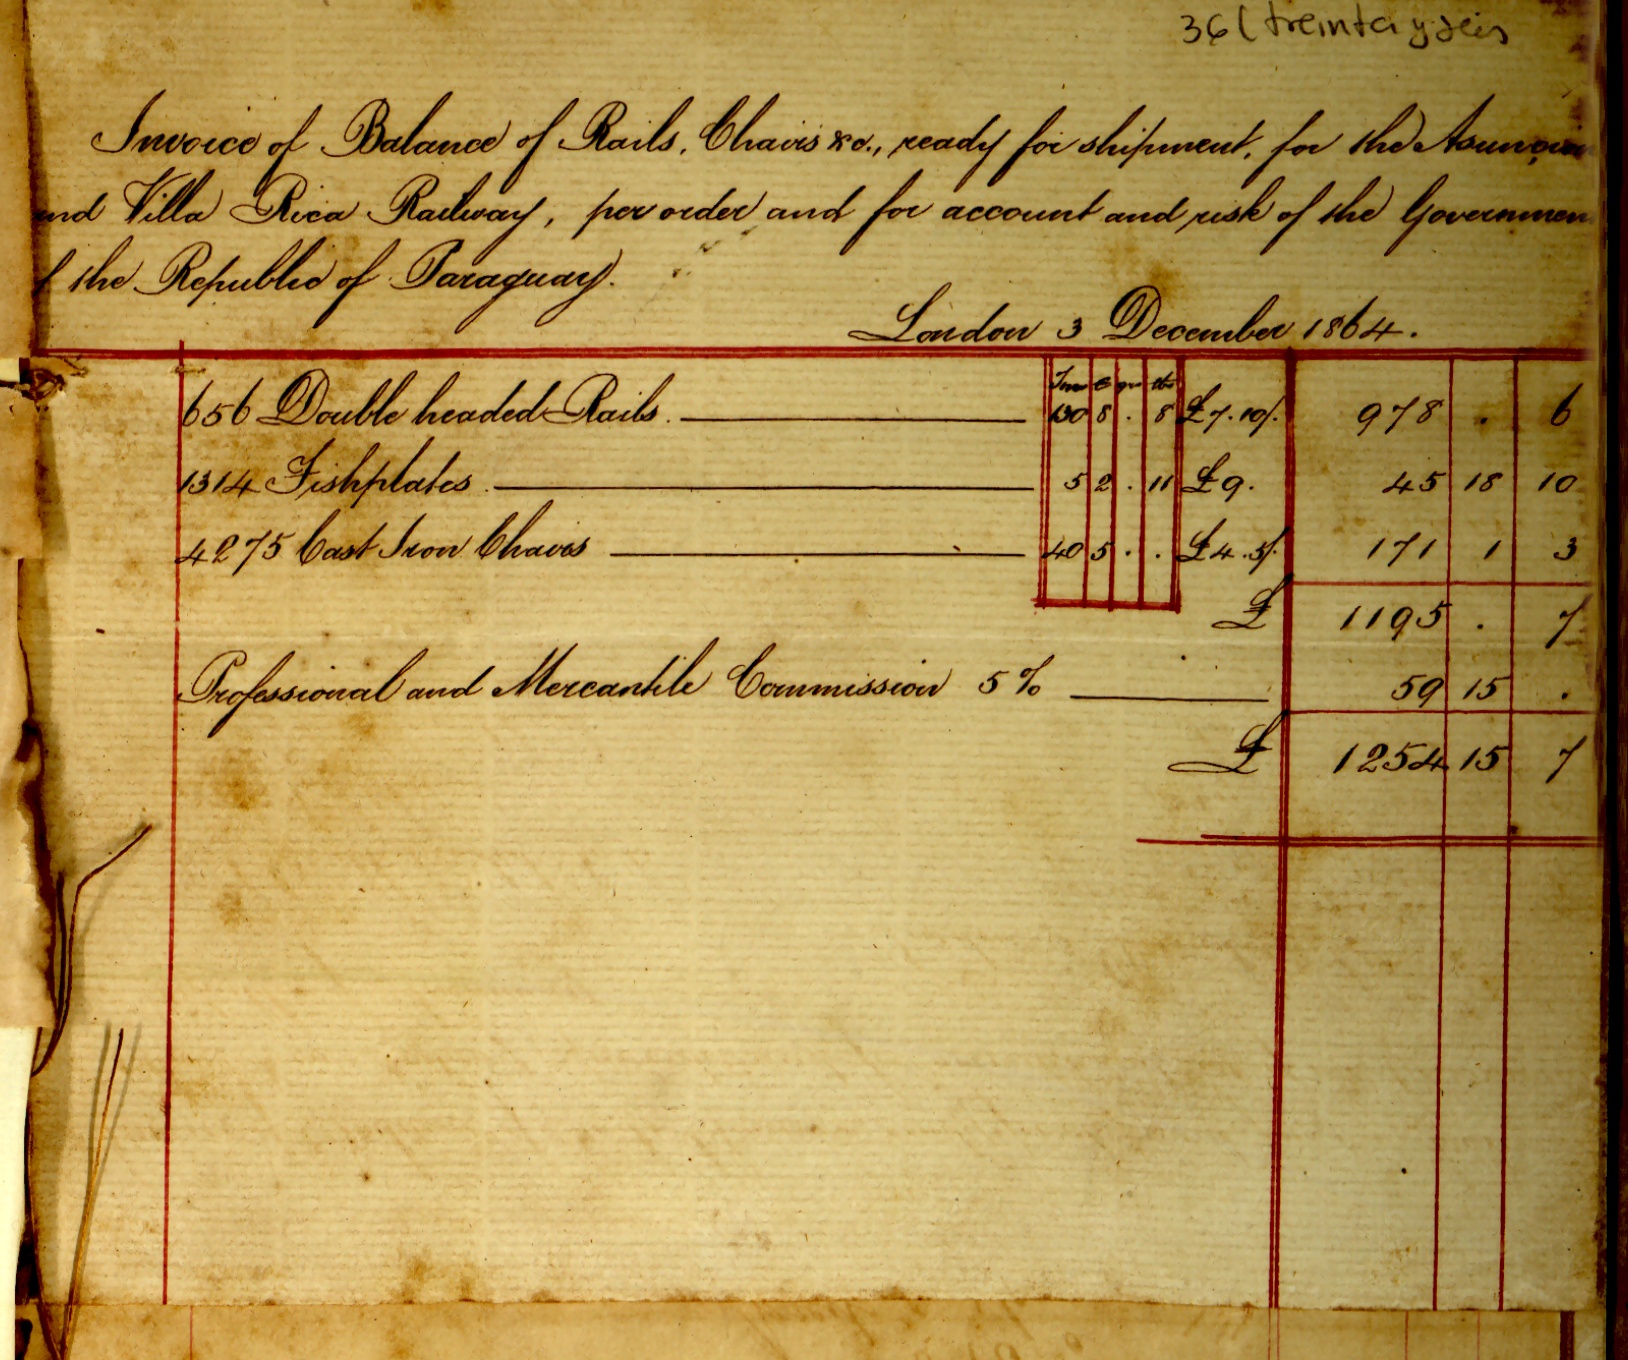 36 (treinta y seis
Invoice of Balance of Rails, Chairs &c., ready for shipment, for the Asuncion
and Villa Rica Railway, per order and for account and risk of the Governmen
f the Republic of Paraguay.
London 3 December 1864.
Tons C qrs lbs
656 Double headed Rails. 130 8 . 8 £7.10/. 978 . 6
1314 Fishplates 5 2 . 11 £9. 45 18 10
4275 Cast Iron Chairs 40 5 . . £4.5/. 171 1 3
£ 1195 . 7
Professional and Mercantile Commission 5% 59 15 .
£ 1254 15 7